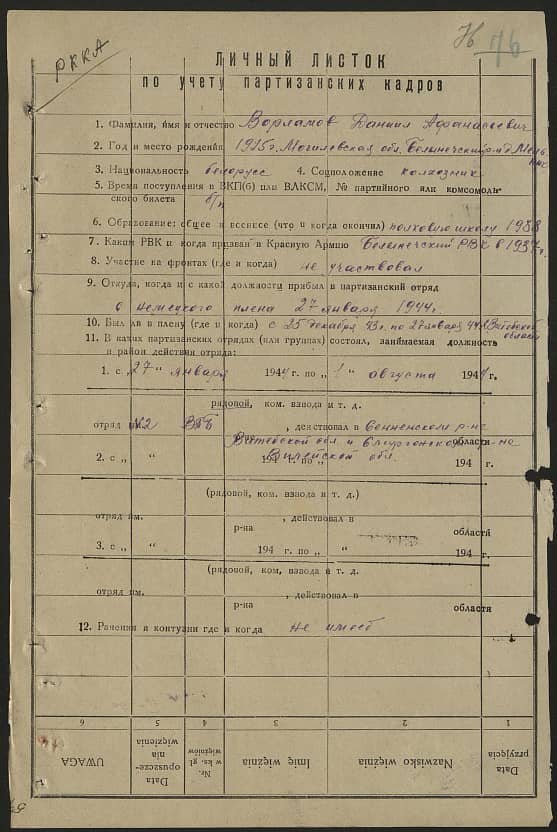 РККА
76
ЛИЧНЫЙ ЛИСТОК
по учету партизанских кадров
1. Фамилия, имя и отчество Ворламов Даниил Афанасьевич
2. Год и место рождения 1915 г. Могилевская обл. Белыничский р-н д.
3. Национальность белорусс 4. Соцположение колхозник
5. Время поступления в ВКП(б) или ВЛКСМ, № партийного или комсомоль-
ского билета б/п
6. Образование: общее и военное (что и когда окончил) полковую школу 1938
7. Каким РВК и когда призван в Красную Армию Белыничский РВК в 1937 г.
8. Участие на фронтах (где и когда) не участвовал
9. Откуда, когда и с какой должности прибыл в партизанский отряд
с немецкого плена 27 января 1944 г.
10. Был ли в плену (где и когда) с 25 декабря 43 г. по 27 января 44 г. Витебской
области
11. В каких партизанских отрядах (или группах) состоял, занимаемая должность
и район действия отряда:
1. с „27“ января 1944 г. по „1“ августа 1944 г.
рядовой, ком. взвода и т. д.
отряд им. №2 ВПБ, действовал в Сенненском р-не
Витебской обл. и Сморгонского р-на области
Вилейской обл.
2. с „ “ 194 г. по „ “ 194 г.
(рядовой, ком. взвода и т. д.)
отряд им. , действовал в
р-на области
3. с „ “ 194 г. по „ “ 194 г.
(рядовой, ком. взвода и т. д.
отряд им. , действовал в
р-на области
12. Ранения и контузии где и когда не имеет
6 5 4 3 2 1
UWAGA
Data opuszcze-
nia
więzienia
Nr.
w ks. gł.
więźniów
Imię więźnia
Nazwisko więźnia
Data
przyjęcia